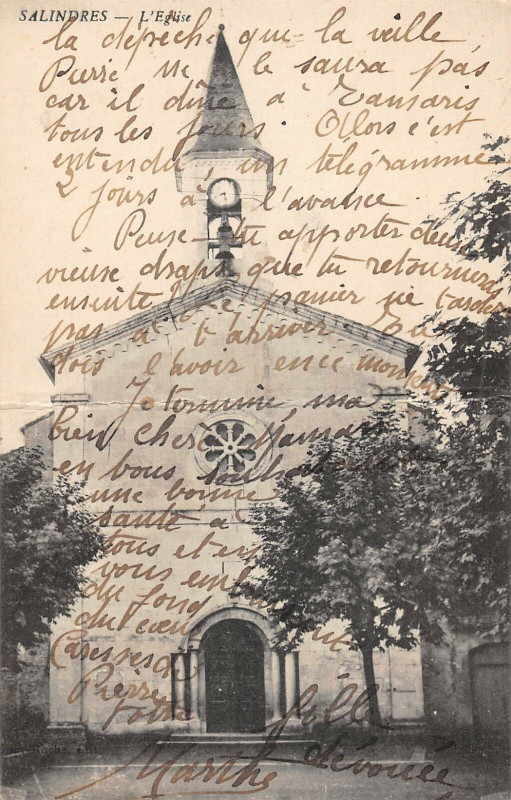 SALINDRES — L'Eglise
la dépêche que la veille
Pierre ne le saura pas
car il dîne à Tamaris
tous les jours. Alors c'est
entendu un télégramme
2 jours à l'avance.
Peux-tu apporter deux
vieux draps que tu retourneras
ensuite. Le panier ne tardera
pas à t'arriver. Tu
dois l'avoir en ce moment
Je termine, ma
bien chère Maman
en vous souhaitant
une bonne
santé à
tous et en
vous embrassant
du fond
du cœur
Caresses à
Pierre
Votre fille dévouée
Marthe